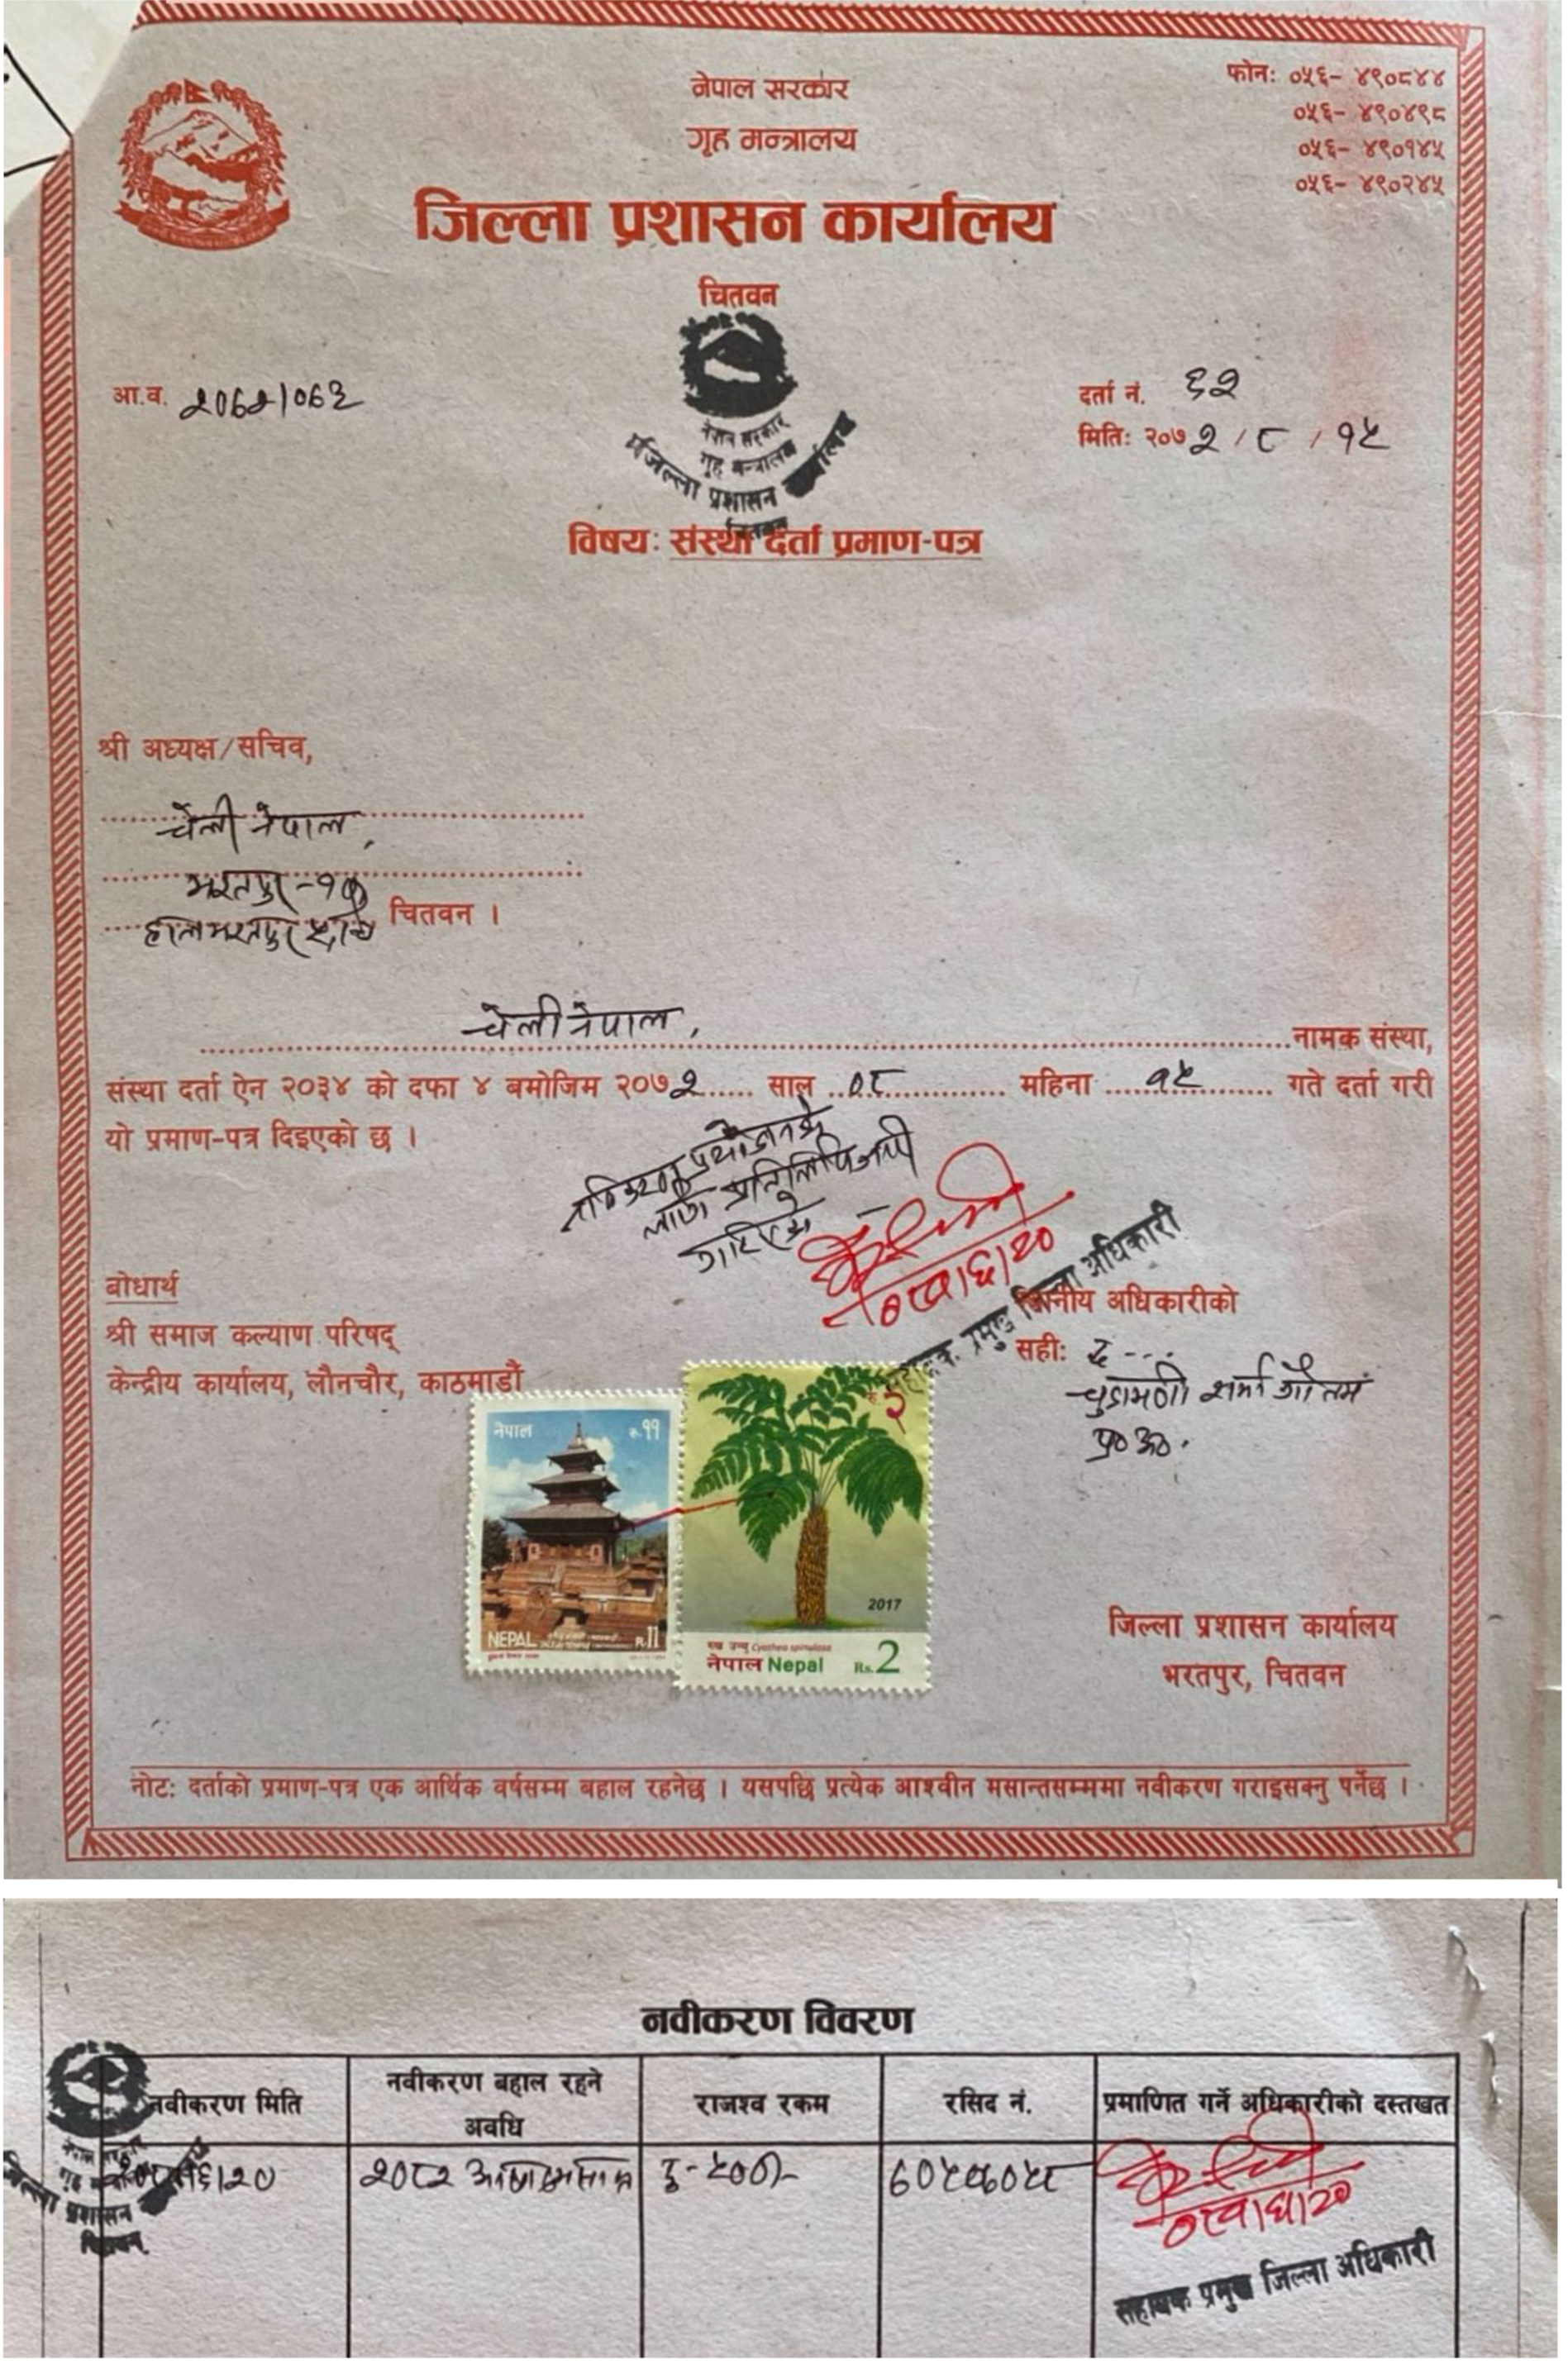 नेपाल सरकार
गृह मन्त्रालय
जिल्ला प्रशासन कार्यालय
चितवन
फोन: ०५६- ४९०८४४
०५६- ४९०४९८
०५६- ४९०१४५
०५६- ४९०२४५
नेपाल सरकार
गृह मन्त्रालय
जिल्ला प्रशासन कार्यालय
चितवन
आ.व. २०७२/०७३
दर्ता नं. ६२
मिति: २०७२/८/१५
विषय: संस्था दर्ता प्रमाण-पत्र
श्री अध्यक्ष/सचिव,
चेली नेपाल,
भरतपुर-१०
चितवन ।
चेली नेपाल, नामक संस्था,
संस्था दर्ता ऐन २०३४ को दफा ४ बमोजिम २०७२ साल ०८ महिना १५ गते दर्ता गरी
यो प्रमाण-पत्र दिइएको छ ।
प्रयोजनको
लागि प्रतिलिपि जारी
गरिएको
बोधार्थ
श्री समाज कल्याण परिषद्
केन्द्रीय कार्यालय, लौनचौर, काठमाडौं
सहायक प्रमुख जिल्ला अधिकारी
अधिकारीको
सही: द---
चुडामणी शर्मा गौतम
प्र० अ०
नेपाल रु ११
NEPAL R.11
2017
रुख उन्यू Cyathea spinulosa
नेपाल Nepal Rs.2
जिल्ला प्रशासन कार्यालय
भरतपुर, चितवन
नोट: दर्ताको प्रमाण-पत्र एक आर्थिक वर्षसम्म बहाल रहनेछ । यसपछि प्रत्येक आश्वीन मसान्तसम्ममा नवीकरण गराइसक्नु पर्नेछ ।
नवीकरण विवरण
नवीकरण मिति नवीकरण बहाल रहने अवधि राजश्व रकम रसिद नं. प्रमाणित गर्ने अधिकारीको दस्तखत
२०८२ रु-५००/-
नेपाल सरकार
जिल्ला प्रशासन
चितवन
सहायक प्रमुख जिल्ला अधिकारी